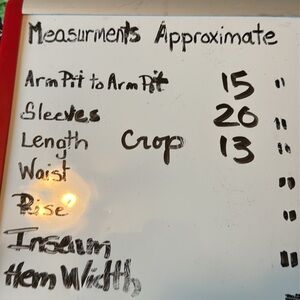 Measurments Approximate
ArmPit to ArmPit 15 "
Sleeves 20 "
Length Crop 13 "
Waist "
Rise "
Inseam "
Hem Width "